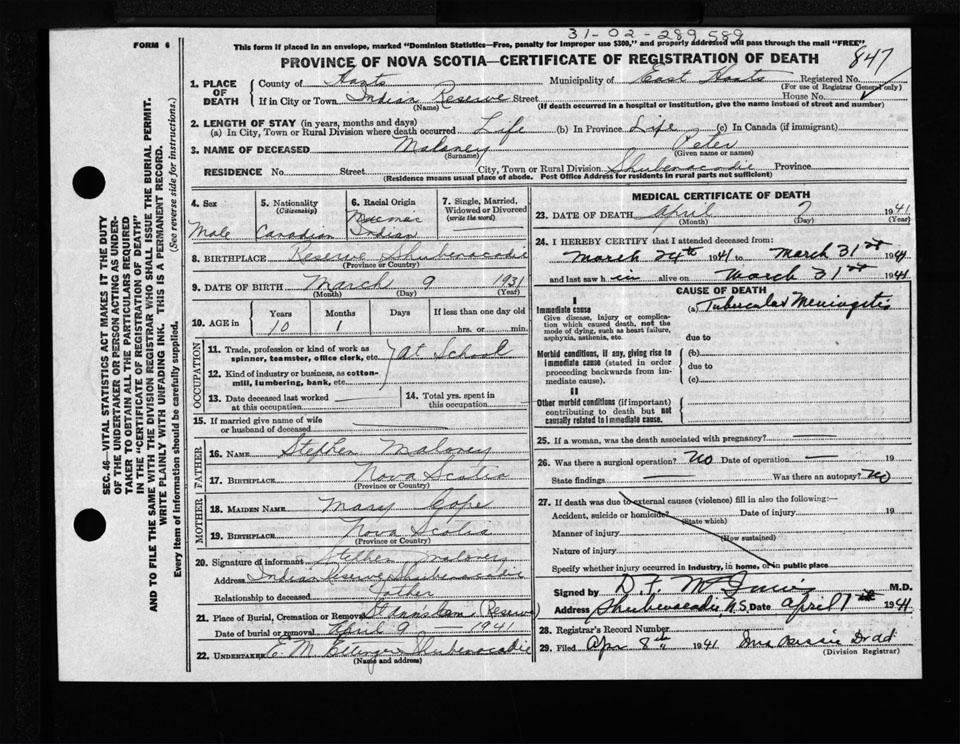 31-02-289 589
FORM 6
This form if placed in an envelope, marked "Dominion Statistics—Free, penalty for improper use $300," and properly addressed will pass through the mail "FREE"
PROVINCE OF NOVA SCOTIA—CERTIFICATE OF REGISTRATION OF DEATH
847
1. PLACE OF DEATH
County of Hants Municipality of East Hants Registered No.
(For use of Registrar General only)
If in City or Town Indian Reserve Street House No.
(Name) (If death occurred in a hospital or institution, give the name instead of street and number)
2. LENGTH OF STAY (in years, months and days)
(a) In City, Town or Rural Division where death occurred Life (b) In Province Life (c) In Canada (if immigrant)
3. NAME OF DECEASED Maloney Peter
(Surname) (Given name or names)
RESIDENCE No. Street City, Town or Rural Division Shubenacadie Province
(Residence means usual place of abode. Post Office Address for residents in rural parts not sufficient)
4. Sex 5. Nationality (Citizenship) 6. Racial Origin 7. Single, Married, Widowed or Divorced (write the word)
Male Canadian Micmac Indian
8. BIRTHPLACE Reserve Shubenacadie
(Province or Country)
9. DATE OF BIRTH March 9 1931
(Month) (Day) (Year)
10. AGE in Years Months Days If less than one day
10 1 hrs. or min.
OCCUPATION
11. Trade, profession or kind of work as spinner, teamster, office clerk, etc. At School
12. Kind of industry or business, as cotton-mill, lumbering, bank, etc.
13. Date deceased last worked at this occupation
14. Total yrs. spent in this occupation
15. If married give name of wife or husband of deceased
FATHER
16. NAME Stephen Maloney
17. BIRTHPLACE Nova Scotia
(Province or Country)
MOTHER
18. MAIDEN NAME Mary Cope
19. BIRTHPLACE Nova Scotia
(Province or Country)
20. Signature of informant Stephen Maloney
Address Indian Reserve Shubenacadie
Relationship to deceased Father
21. Place of Burial, Cremation or Removal (Reserve)
Date of burial or removal April 9 1941
22. UNDERTAKER E. M. Shubenacadie
(Name and address)
MEDICAL CERTIFICATE OF DEATH
23. DATE OF DEATH April 7 1941
(Month) (Day) (Year)
24. I HEREBY CERTIFY that I attended deceased from:
March 24th 1941 to March 31st 1941
and last saw h im alive on March 31st 1941
CAUSE OF DEATH
I
Immediate cause
Give disease, injury or complication which caused death, not the mode of dying, such as heart failure, asphyxia, asthenia, etc.
(a) Tubercular Meningitis
due to
Morbid conditions, if any, giving rise to immediate cause (stated in order proceeding backwards from immediate cause).
(b)
due to
(c)
II
Other morbid conditions (if important) contributing to death but not causally related to immediate cause.
25. If a woman, was the death associated with pregnancy?
26. Was there a surgical operation? No Date of operation 19
State findings Was there an autopsy? No
27. If death was due to external causes (violence) fill in also the following:—
Accident, suicide or homicide? Date of injury 19
(State which)
Manner of injury
(How sustained)
Nature of injury
Specify whether injury occurred in Industry, in home, or in public place
Signed by D. F. M.D.
Address Shubenacadie, N.S. Date April 1941
28. Registrar's Record Number
29. Filed Apr 8th 1941 Mrs Bessie
(Division Registrar)
SEC. 46—VITAL STATISTICS ACT MAKES IT THE DUTY
OF THE UNDERTAKER OR PERSON ACTING AS UNDER-
TAKER TO OBTAIN ALL THE PARTICULARS REQUIRED
IN THE "CERTIFICATE OF REGISTRATION OF DEATH"
AND TO FILE THE SAME WITH THE DIVISION REGISTRAR WHO SHALL ISSUE THE BURIAL PERMIT.
WRITE PLAINLY WITH UNFADING INK. THIS IS A PERMANENT RECORD.
Every item of information should be carefully supplied. (See reverse side for instructions.)